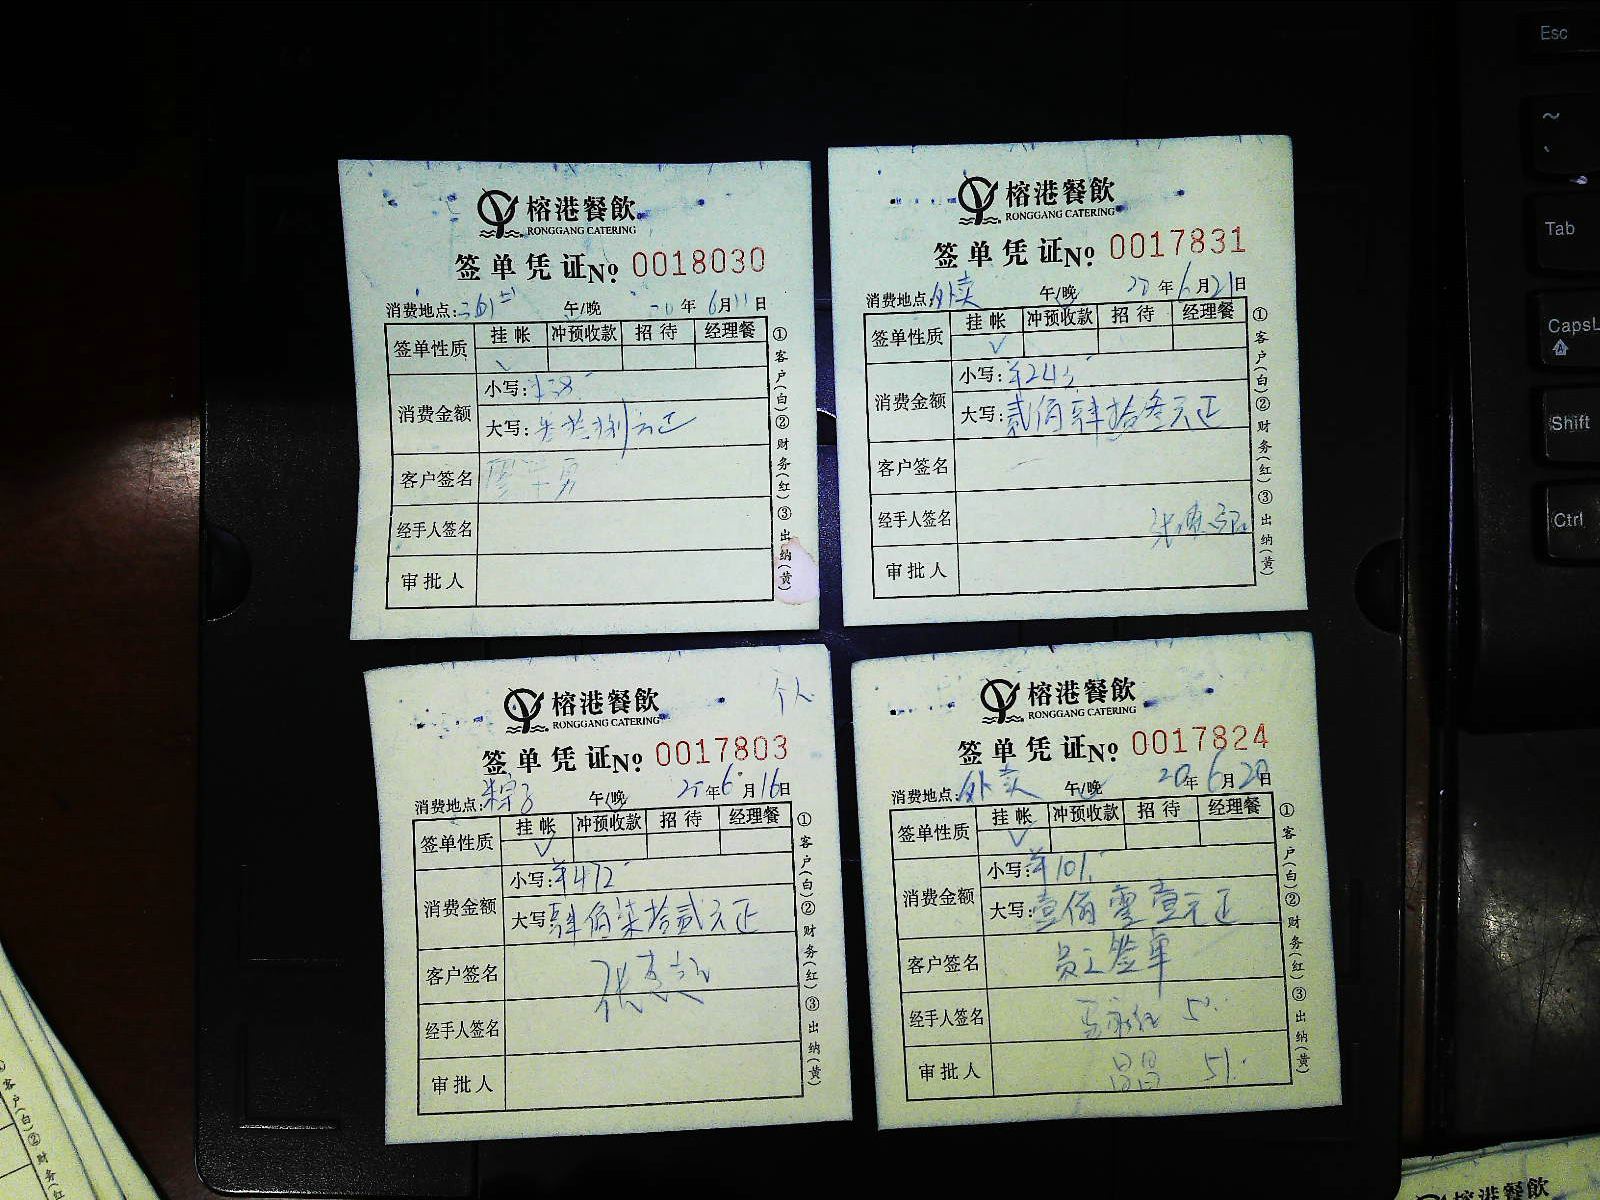 榕港餐飲
RONGGANG CATERING
签单凭证 № 0018030
消费地点: 午/晚 年 6月11日
签单性质 挂帐 冲预收款 招待 经理餐
消费金额 小写:
大写: 元正
客户签名
经手人签名
审批人
①客户(白)②财务(红)③出纳(黄)
榕港餐飲
RONGGANG CATERING
签单凭证 № 0017831
消费地点: 外卖 午/晚 20年6月21日
签单性质 挂帐 冲预收款 招待 经理餐
✓
消费金额 小写: ¥243
大写: 贰佰肆拾叁元正
客户签名
经手人签名
审批人
①客户(白)②财务(红)③出纳(黄)
个人
榕港餐飲
RONGGANG CATERING
签单凭证 № 0017803
消费地点: 粽子 午/晚 20年6月16日
签单性质 挂帐 冲预收款 招待 经理餐
✓
消费金额 小写: ¥472
大写: 肆佰柒拾贰元正
客户签名
经手人签名
审批人
①客户(白)②财务(红)③出纳(黄)
榕港餐飲
RONGGANG CATERING
签单凭证 № 0017824
消费地点: 外卖 午/晚 20年6月20日
签单性质 挂帐 冲预收款 招待 经理餐
✓
消费金额 小写: ¥101
大写: 壹佰零壹元正
客户签名 员工签单
经手人签名
审批人
①客户(白)②财务(红)③出纳(黄)
Esc
~
Tab
Caps
Shift
Ctrl
客户(白)②财务(红
榕港餐飲